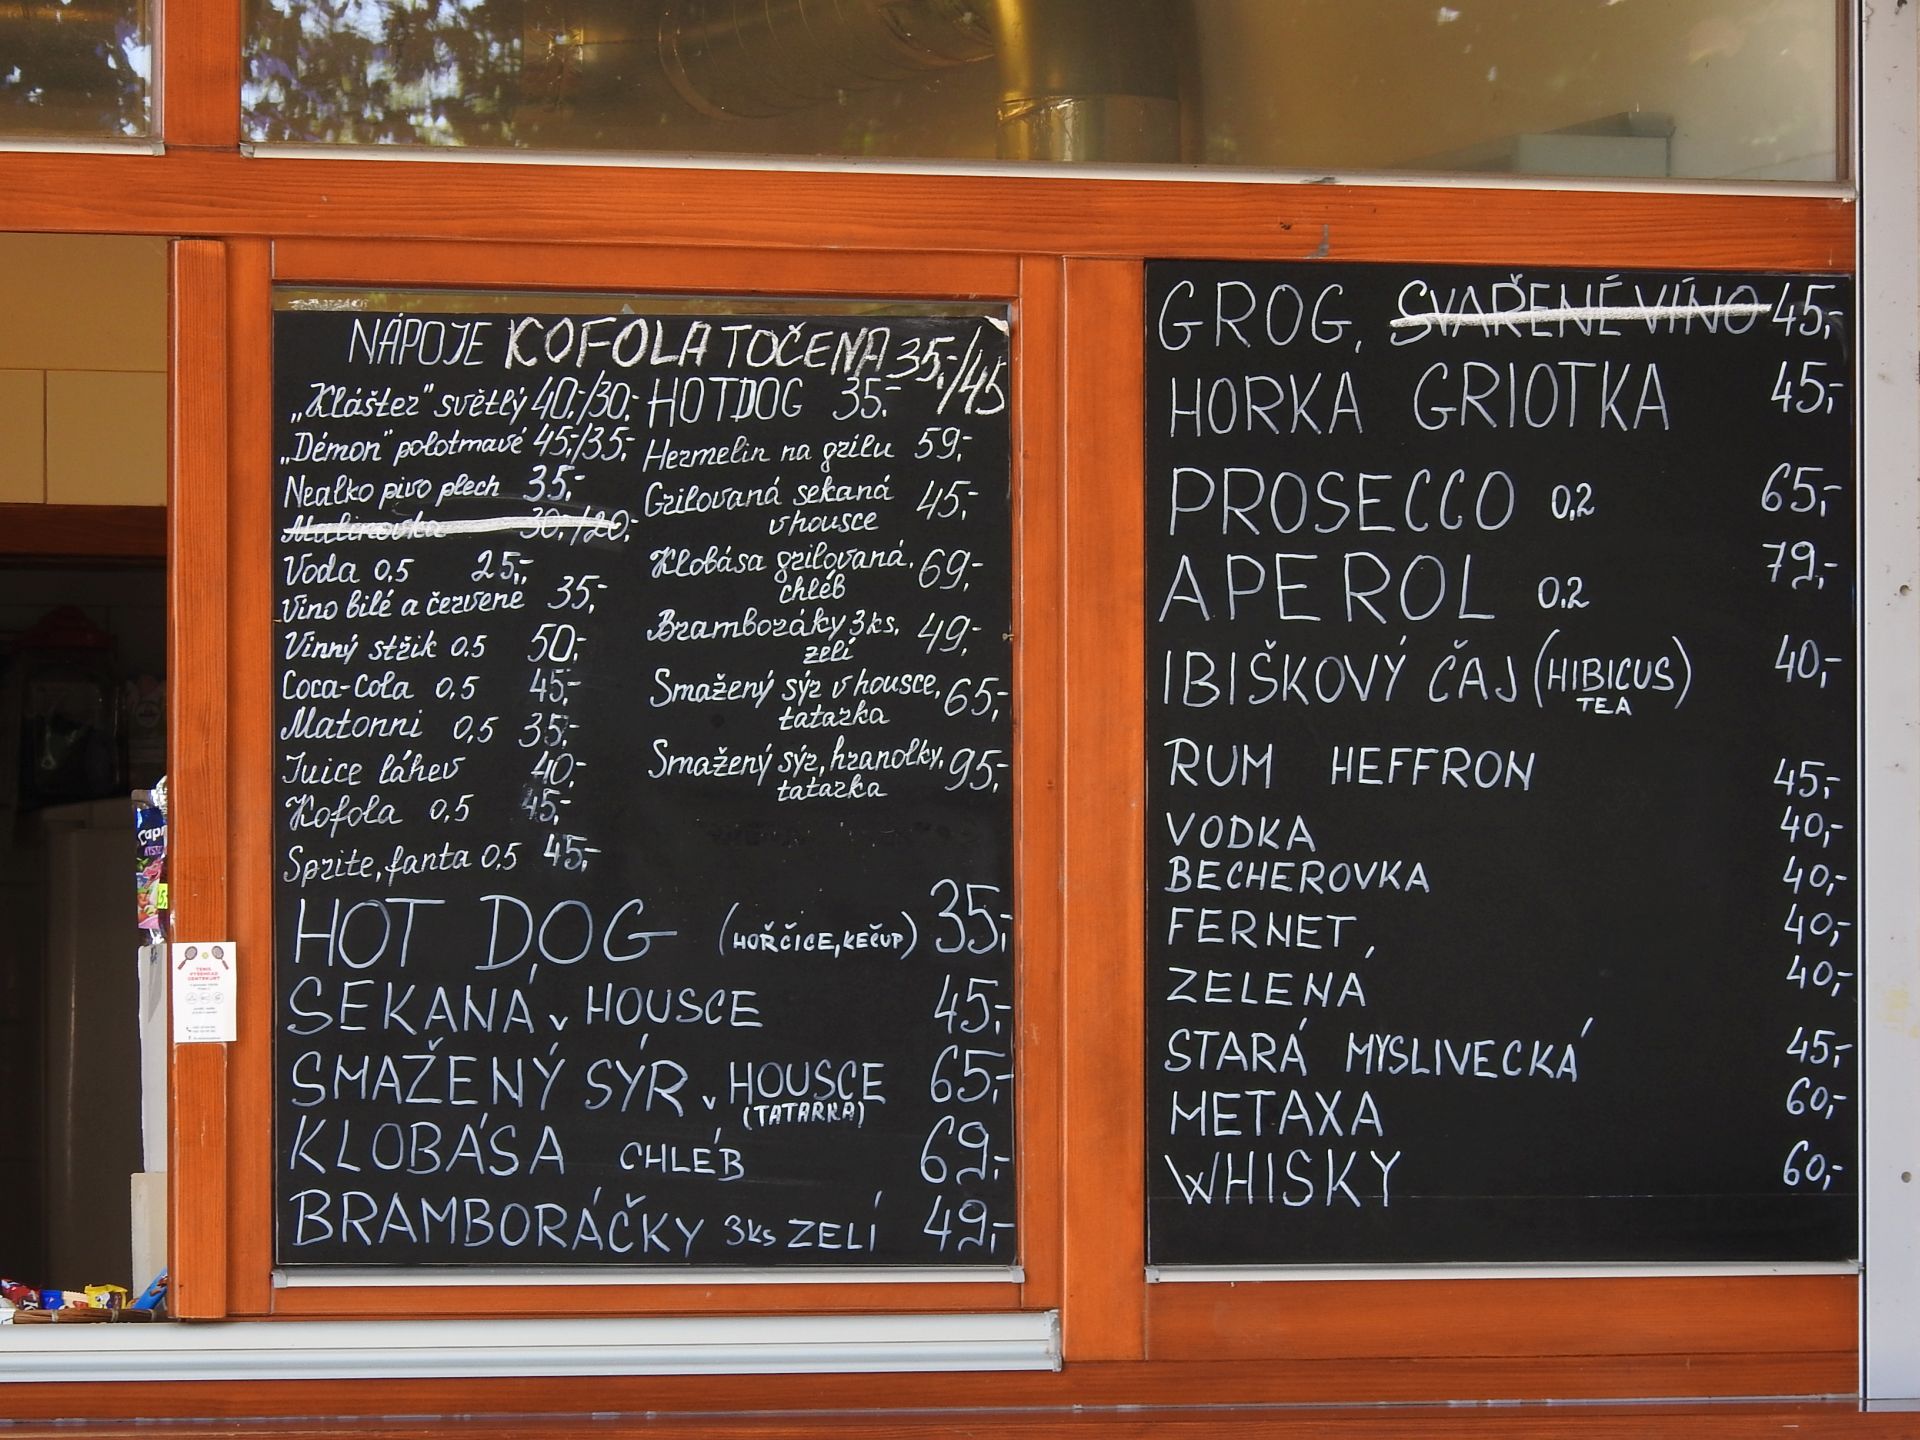 NÁPOJE KOFOLA TOČENA 35,-/45
„Klášter" světlý 40,-/30,-
„Démon" polotmavé 45,-/35,-
Nealko pivo plech 35,-
Malinovka 30,-/20,-
Voda 0,5 25,-
Víno bílé a červené 35,-
Vinný střik 0,5 50,-
Coca-Cola 0,5 45,-
Matonni 0,5 35,-
Juice láhev 40,-
Kofola 0,5 45,-
Sprite, fanta 0,5 45,-
HOTDOG 35.-
Hermelin na grilu 59,-
Grilovaná sekaná 45,-
v housce
Klobása grilovaná, 69,-
chléb
Bramboráky 3ks, 49,-
zelí
Smažený sýr v housce, 65,-
tatarka
Smažený sýr, hranolky, 95,-
tatarka
HOT DOG (HOŘČICE, KEČUP) 35,-
SEKANÁ v HOUSCE 45,-
SMAŽENÝ SÝR v HOUSCE 65,-
(TATARKA)
KLOBÁSA CHLÉB 69,-
BRAMBORÁČKY 3ks ZELÍ 49,-
GROG, SVAŘENÉ VÍNO 45,-
HORKA GRIOTKA 45,-
PROSECCO 0,2 65,-
APEROL 0,2 79,-
IBIŠKOVÝ ČAJ (HIBICUS 40,-
TEA)
RUM HEFFRON 45,-
VODKA 40,-
BECHEROVKA 40,-
FERNET 40,-
ZELENÁ 40,-
STARÁ MYSLIVECKÁ 45,-
METAXA 60,-
WHISKY 60,-